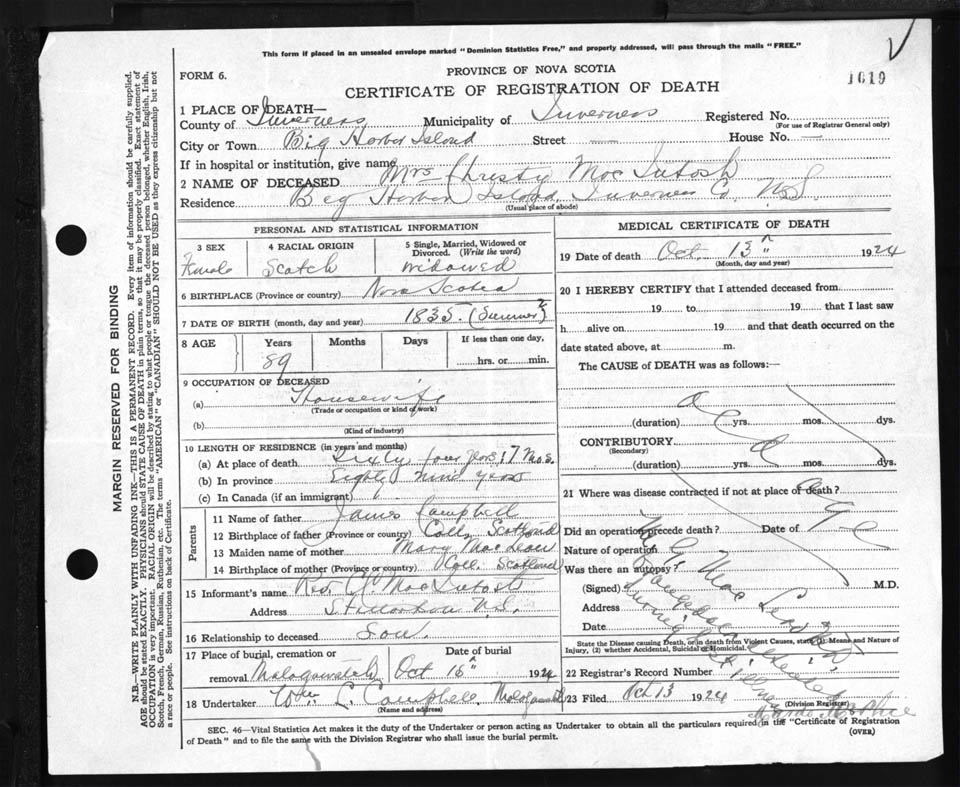 This form if placed in an unsealed envelope marked "Dominion Statistics Free," and properly addressed, will pass through the mails "FREE."
FORM 6.
PROVINCE OF NOVA SCOTIA
1619
CERTIFICATE OF REGISTRATION OF DEATH
1 PLACE OF DEATH—
County of Inverness Municipality of Inverness Registered No.
(For use of Registrar General only)
City or Town Big Harbor Island Street — House No. —
If in hospital or institution, give name
2 NAME OF DECEASED Mrs Christy MacIntosh
Residence Big Harbor Island, Inverness Co. N.S.
(Usual place of abode)
PERSONAL AND STATISTICAL INFORMATION
3 SEX 4 RACIAL ORIGIN 5 Single, Married, Widowed or Divorced. (Write the word)
Female Scotch Widowed
6 BIRTHPLACE (Province or country) Nova Scotia
7 DATE OF BIRTH (month, day and year) 1835. (Summer)
8 AGE Years Months Days If less than one day,
89 hrs. or min.
9 OCCUPATION OF DECEASED
(a) Housewife
(Trade or occupation or kind of work)
(b)
(Kind of industry)
10 LENGTH OF RESIDENCE (in years and months)
(a) At place of death Sixty four years 7 mos.
(b) In province Eighty nine years
(c) In Canada (if an immigrant)
Parents
11 Name of father James Campbell
12 Birthplace of father (Province or country) Coll, Scotland
13 Maiden name of mother Mary MacLean
14 Birthplace of mother (Province or country) Coll, Scotland
15 Informant's name Rev. MacIntosh
Address N.S.
16 Relationship to deceased Son.
17 Place of burial, cremation or removal Date of burial
Malagawatch Oct 15 1924
18 Undertaker Wm. L. Campbell, Malagawatch
(Name and address)
MEDICAL CERTIFICATE OF DEATH
19 Date of death Oct. 13 1924
(Month, day and year)
20 I HEREBY CERTIFY that I attended deceased from
19 to 19 that I last saw
h alive on 19 and that death occurred on
date stated above, at m.
The CAUSE OF DEATH was as follows:—
Old age
(duration) yrs. mos. dys.
CONTRIBUTORY
(Secondary)
(duration) yrs. mos. dys.
21 Where was disease contracted if not at place of death?
Did an operation precede death? Date of
Nature of operation
Was there an autopsy?
(Signed) M.D.
Address
Date
State the Disease causing Death, or in death from Violent Causes, state (1) Means and Nature of Injury, (2) whether Accidental, Suicidal or Homicidal.
22 Registrar's Record Number
23 Filed Oct 13 1924
(Division Registrar)
SEC. 46—Vital Statistics Act makes it the duty of the Undertaker or person acting as Undertaker to obtain all the particulars required in the "Certificate of Registration
of Death" and to file the same with the Division Registrar who shall issue the burial permit.
(OVER)
MARGIN RESERVED FOR BINDING
N.B.—WRITE PLAINLY WITH UNFADING INK—THIS IS A PERMANENT RECORD. Every item of information should be carefully supplied.
AGE should be stated EXACTLY. PHYSICIANS should STATE CAUSE OF DEATH in plain terms, so that it may be properly classified. Exact statement of
OCCUPATION is very important. RACIAL ORIGIN will be described by stating to what people or tongue the deceased person belonged, whether English, Irish,
Scotch, French, German, Russian, Ruthenian, etc. The terms "AMERICAN" or "CANADIAN" SHOULD NOT BE USED as they express citizenship but not
a race or people. See instructions on back of Certificate.